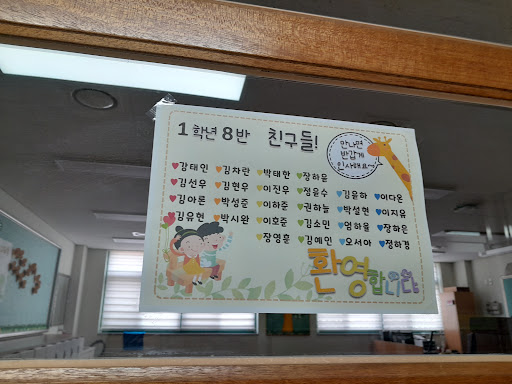 1학년 8반 친구들!
만나면
반갑게
인사해요~
강태인 김차란 박태한 장하윤
김선우 김현우 이진우 정윤수 김윤하 이다온
김아론 박성준 이하준 권하늘 박설현 이지유
김유현 박시완 이호준 김소민 엄하율 장하은
장영훈 김예인 오서아 정하경
환영합니다